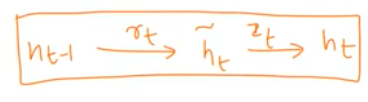 h_{t-1} \xrightarrow{r_t} \tilde{h}_t \xrightarrow{z_t} h_t